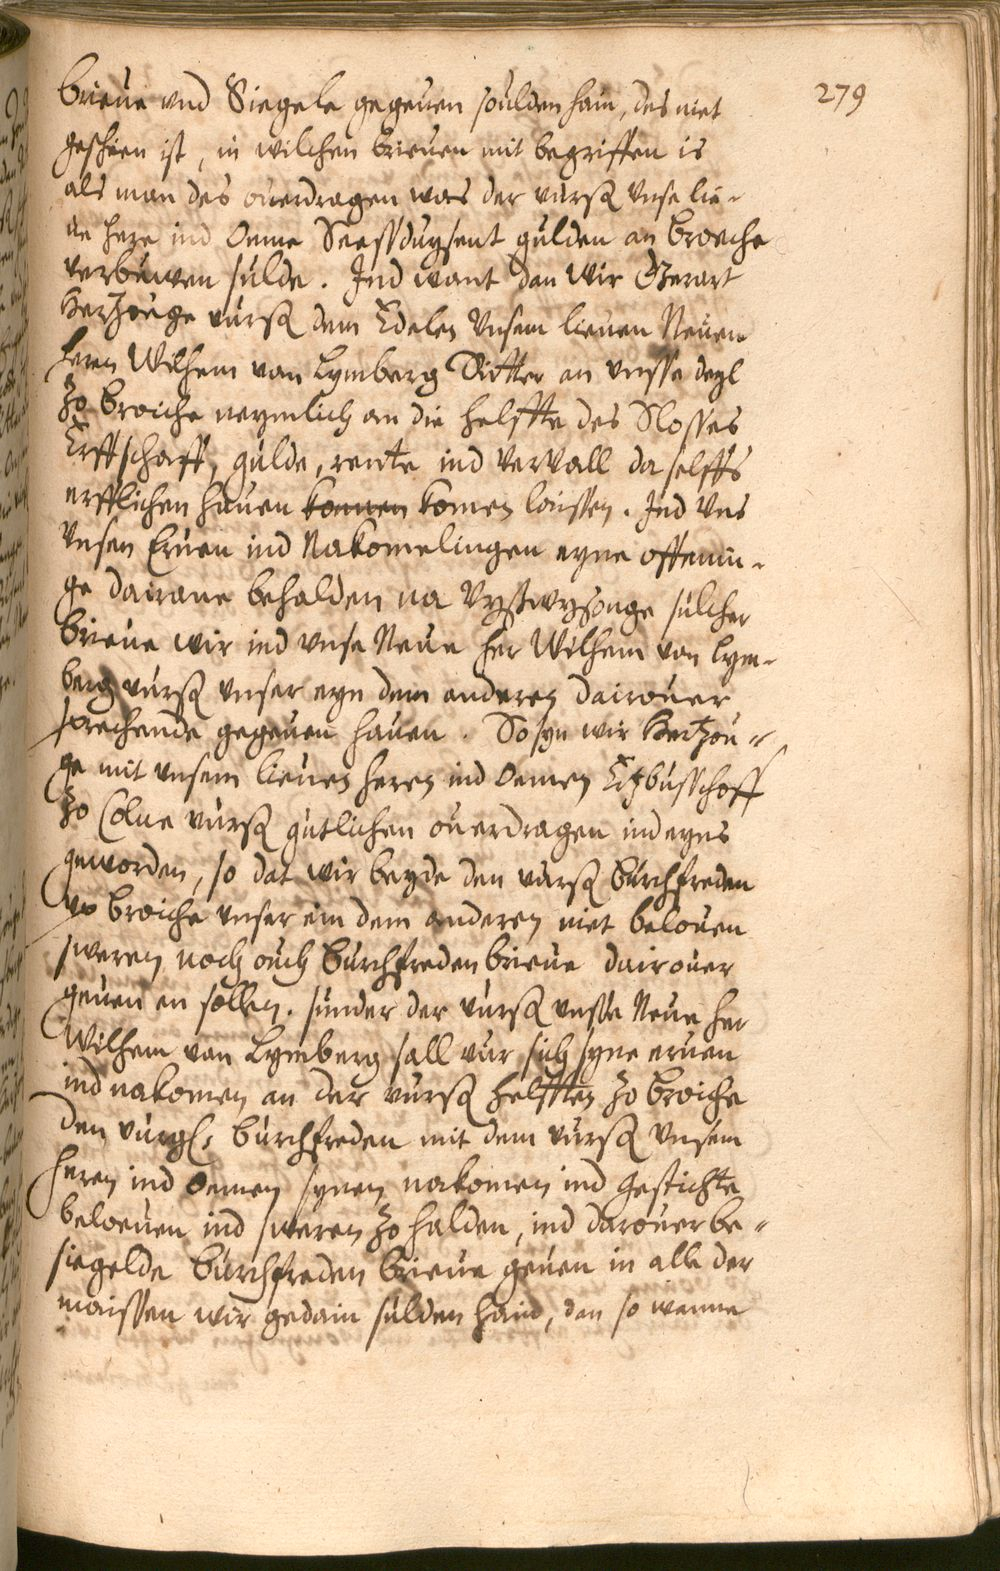 279
brieue vnd Siegele gegeuen soulden hain, des niet
gescheen ist, in wilchen brieuen mit begriffen is
als man des ouerdragen was der vurß vnse lie-
ue here ind Oeme Seessduysent gulden an broeche
verbuwen sulde. Ind want dan Wir Gerart
Hertzouge vurß dem Edelen Vnsem lieuen Neuen
heren Wilhem van Lymberg Ritter an vnsse deyl
Zo broiche neymlich an die helffte des Slosses
Erffschafft, gulde, rente ind Vervall daselffs
erfflichen hauen komen laissen. Ind Vns
Vnsen Eruen ind Nakomelingen eyne offenin-
ge dairane behalden na Vyßwysonge sulcher
brieue wir ind vnse Neue her Wilhem van Lym-
berg vurß vnser eyn dem anderen dairouer
sprechende gegeuen hauen. So syn wir Hertzou-
ge mit vnsem lieuen heren ind Oemen Ertzbusschoff
Zo Colne vurß gutlichen ouerdragen ind eyns
geworden, so dat wir beyde den vurß burchfreden
vp broiche vnser ein dem anderen niet belouen
sweren noch ouch burchfreden brieue dairouer
geuen en sollen. sunder der vurß vnsse Neue her
Wilhem van Lymberg sall vur sich syne eruen
ind nakomen an der vurß helfften Zo broiche
den vurgß: burchfreden mit dem vurß Vnsem
heren ind Oemen synen nakomen ind Gestichte
beloeuen ind sweren Zo halden, ind darouer be-
siegelde burchfreden brieue geuen in alle der
maissen wir gedain sulden hain, dan so wanne